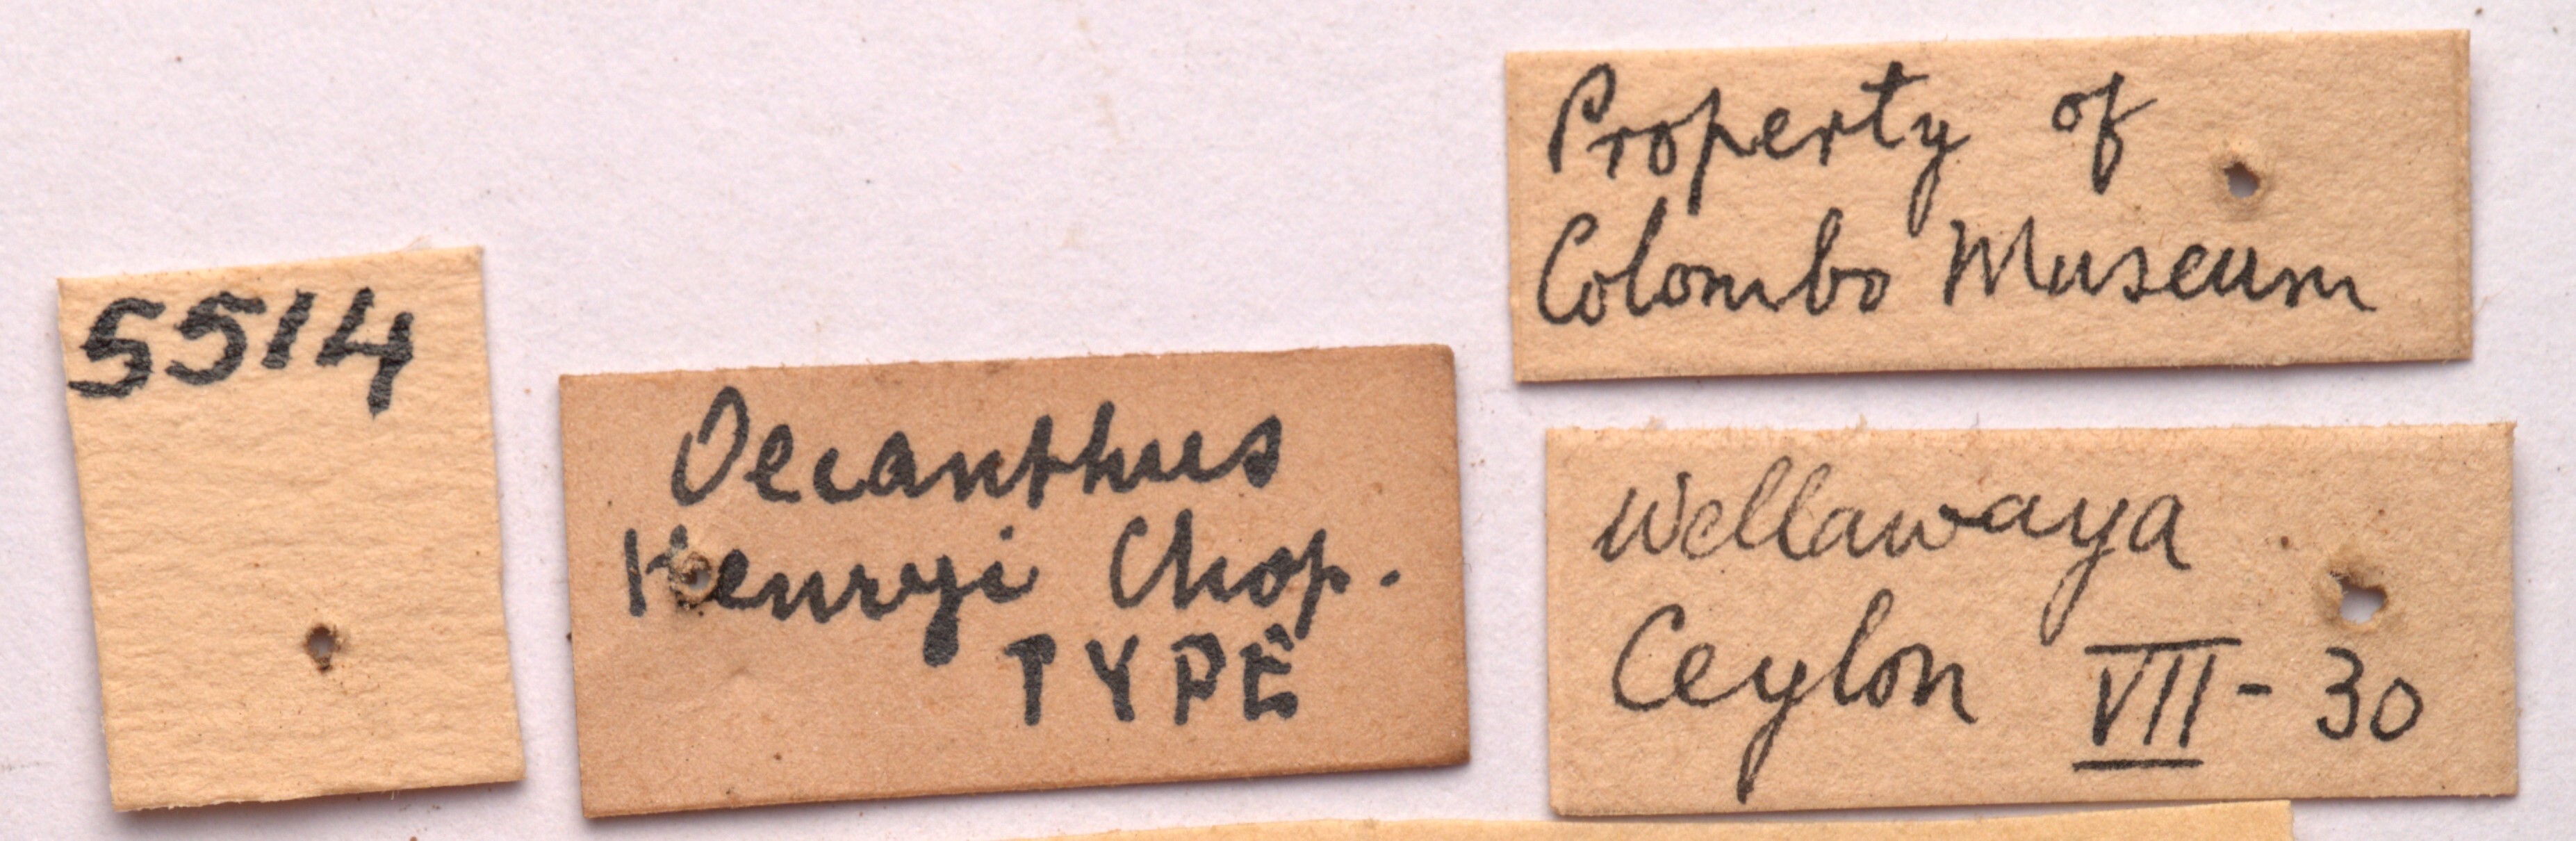 5514
Oecanthus
Henryi Chop.
TYPE
Property of
Colombo Museum
Wellawaya
Ceylon VII - 30